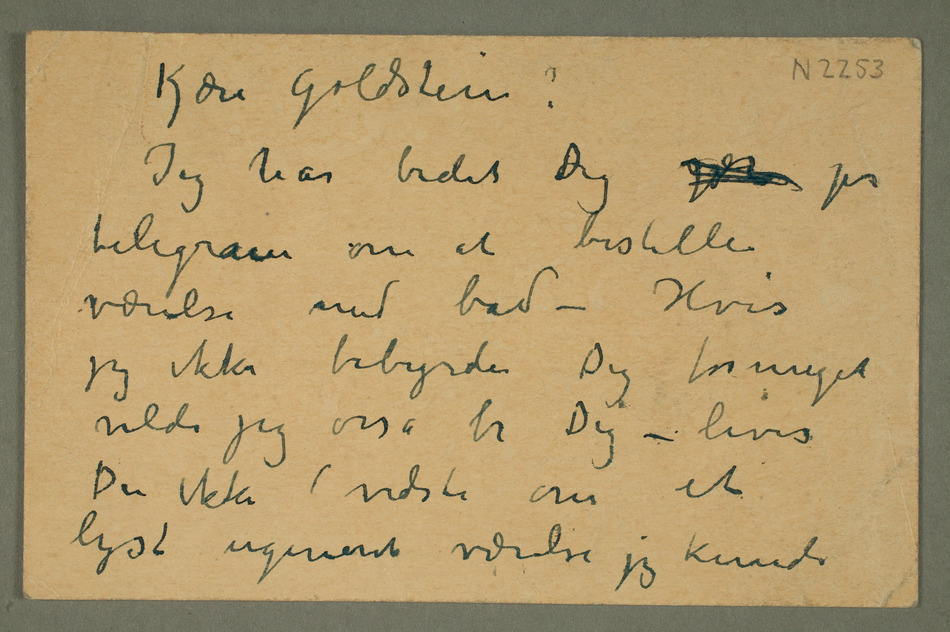 N 2253
Kjære Goldstein?
Jeg har bedet Dig pr
telegram om at bestille
værelse med bad – Hvis
jeg ikke bebyrder Dig formeget
vilde jeg også be Dig – hvis
Du ikke vidste om et
lyst ugenert værelse jeg kunde